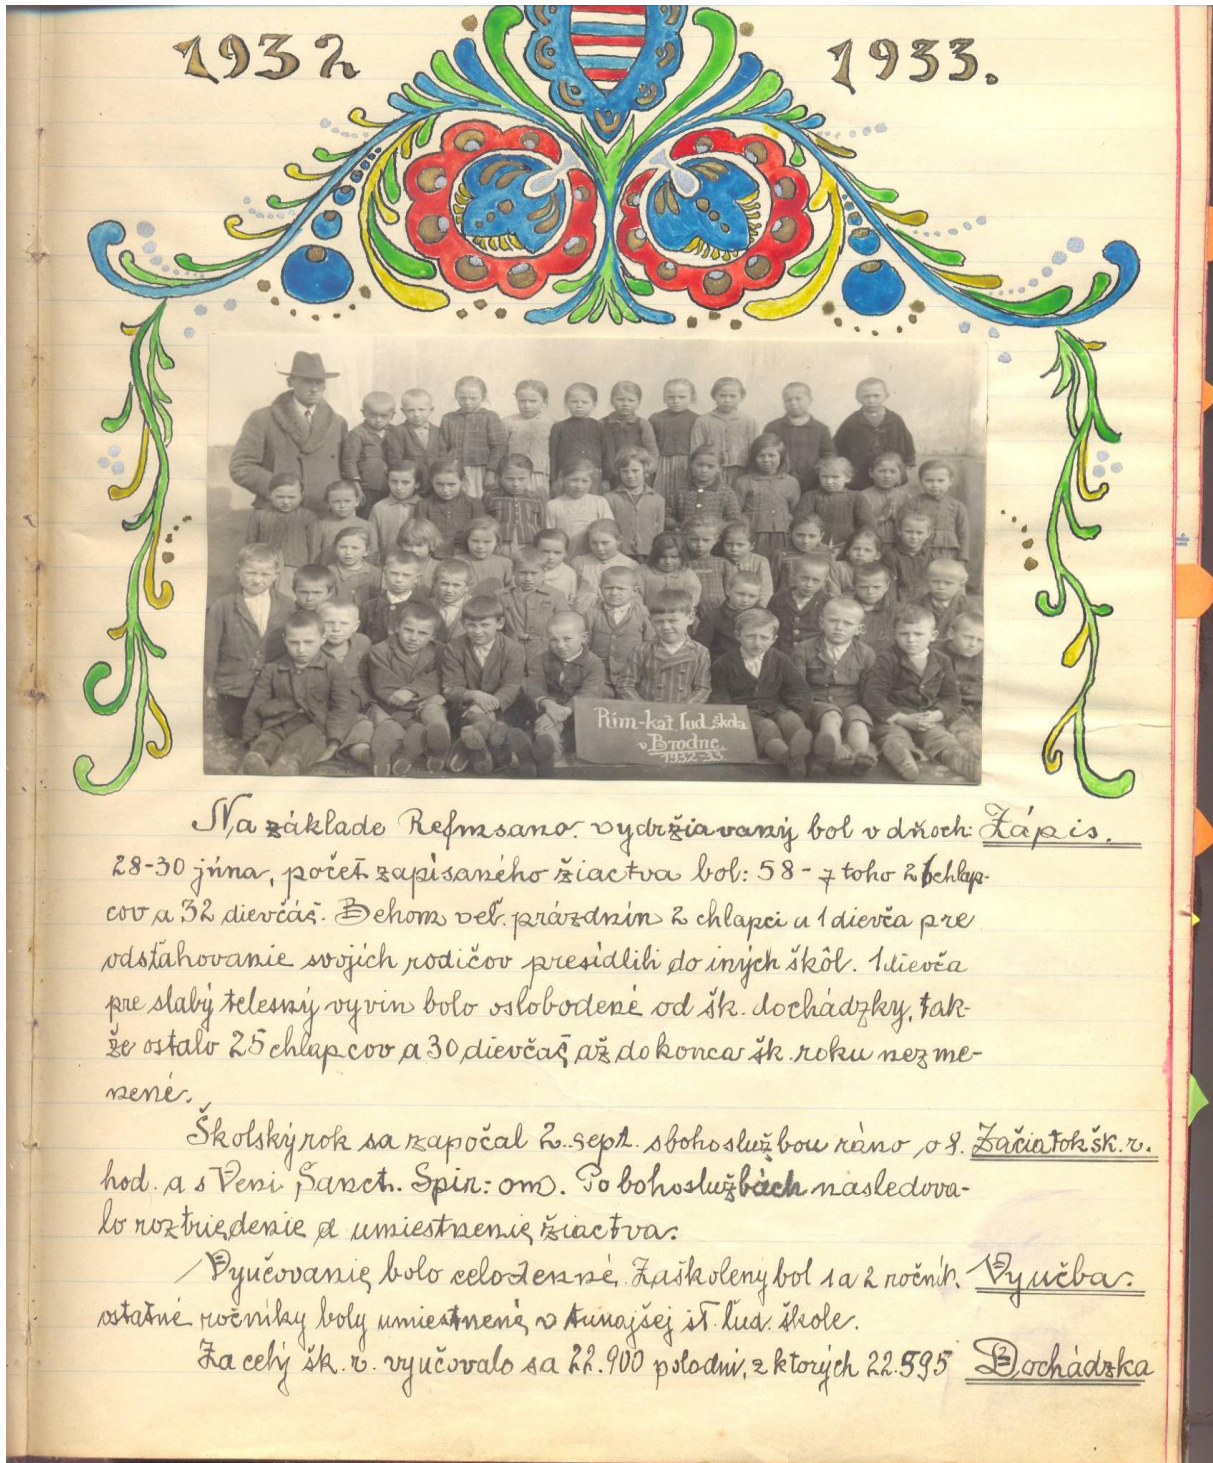 1932 1933.
Rim-kat ľud. škola
v Brodne.
1932-33.
Na základe vydržiavaný bol v dňoch: Zápis.
28-30 júna, počet zapísaného žiactva bol: 58 - z toho 26 chlap-
cov a 32 dievčať. Behom veľ. prázdnin 2 chlapci a 1 dievča pre
odsťahovanie svojich rodičov presídlili do iných škôl. 1 dievča
pre slabý telesný vyvin bolo oslobodené od šk. dochádzky, tak-
že ostalo 25 chlapcov a 30 dievčať až do konca šk. roku nezme-
nené.
Školský rok sa započal 2. sept. s bohoslužbou ráno o 8. Začiatok šk. r.
hod. a s Veni Sanct. Spir: om. Po bohoslužbách nasledova-
lo roztriedenie a umiestnenie žiactva.
Vyučovanie bolo celodenné. Zaškolený bol 1 a 2 ročník. Vyučba.
ostatné ročníky boly umiestnené v tunajšej št. ľud. škole.
Za celý šk. r. vyučovalo sa 22.900 poldní, z ktorých 22.595 Dochádzka